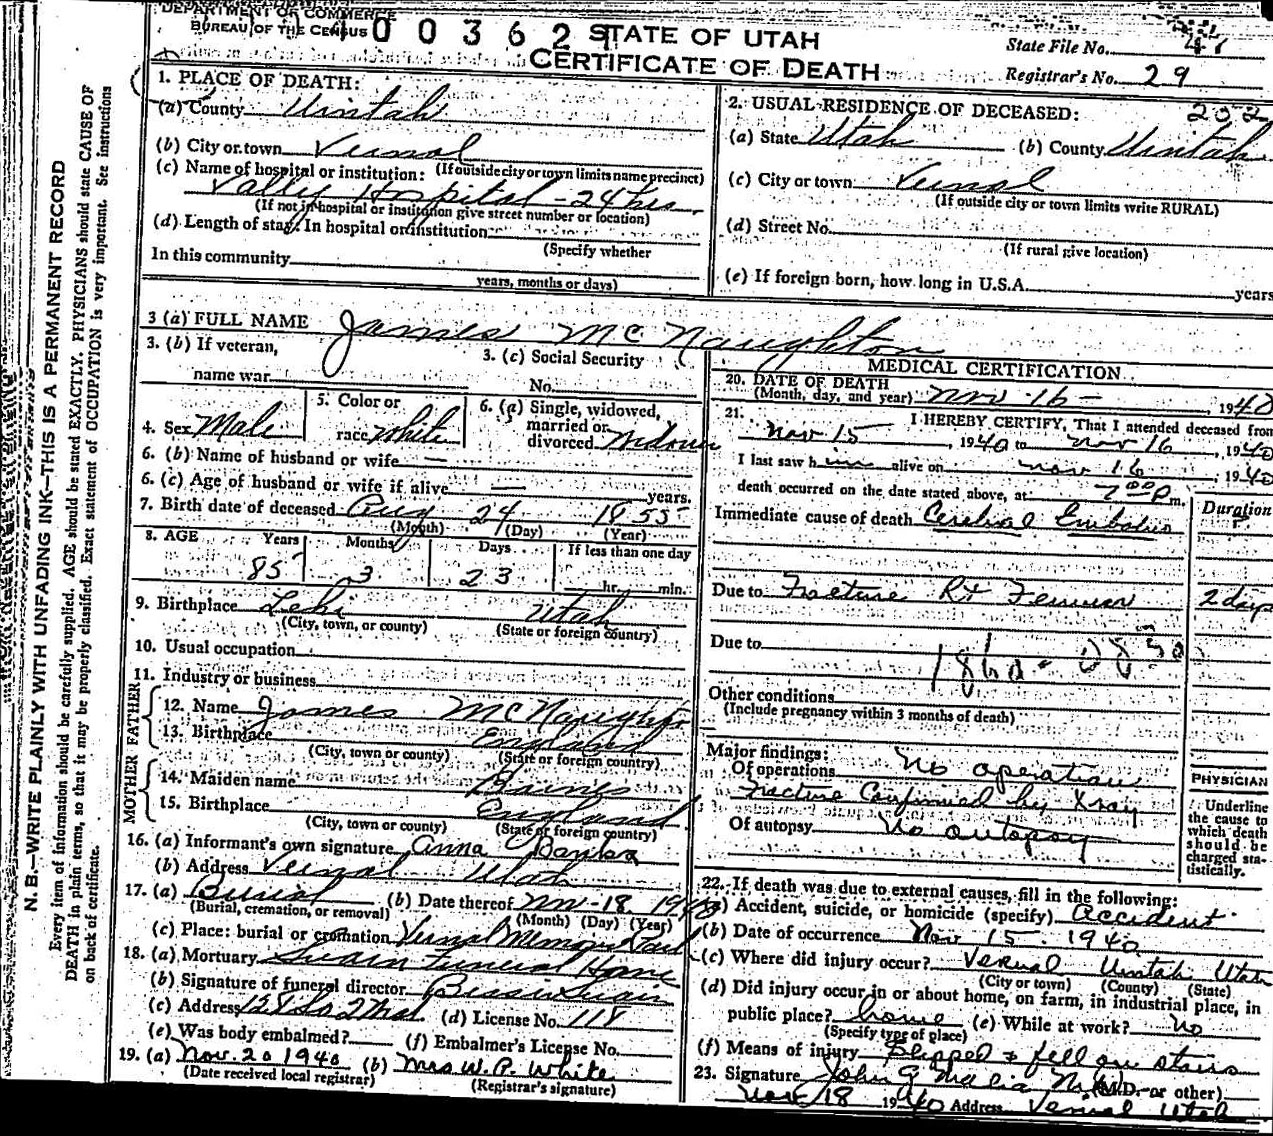 DEPARTMENT OF COMMERCE
BUREAU OF THE CENSUS
STATE OF UTAH
CERTIFICATE OF DEATH
State File No. 41
Registrar's No. 29
N. B.—WRITE PLAINLY WITH UNFADING INK—THIS IS A PERMANENT RECORD
Every item of information should be carefully supplied. AGE should be stated EXACTLY. PHYSICIANS should state CAUSE OF
DEATH in plain terms, so that it may be properly classified. Exact statement of OCCUPATION is very important. See instructions
on back of certificate.
1. PLACE OF DEATH:
(a) County Uintah
(b) City or town Vernal
(If outside city or town limits name precinct)
(c) Name of hospital or institution:
Valley Hospital - 24 hrs.
(If not in hospital or institution give street number or location)
(d) Length of stay: In hospital or institution
(Specify whether
In this community
years, months or days)
2. USUAL RESIDENCE OF DECEASED:
(a) State Utah (b) County Uintah
(c) City or town Vernal
(If outside city or town limits write RURAL)
(d) Street No.
(If rural give location)
(e) If foreign born, how long in U.S.A. years
3 (a) FULL NAME James McNaughton
3. (b) If veteran,
name war
3. (c) Social Security
No.
4. Sex Male
5. Color or
race White
6. (a) Single, widowed,
married or
divorced Widower
6. (b) Name of husband or wife —
6. (c) Age of husband or wife if alive — years.
7. Birth date of deceased Aug 24 1855
(Month) (Day) (Year)
8. AGE Years Months Days If less than one day
85 3 23 hr. min.
9. Birthplace Lehi Utah
(City, town, or county) (State or foreign country)
10. Usual occupation
11. Industry or business
FATHER
12. Name James McNaughton
13. Birthplace England
(City, town or county) (State or foreign country)
MOTHER
14. Maiden name Baines
15. Birthplace England
(City, town or county) (State or foreign country)
16. (a) Informant's own signature Anna Banks
(b) Address Vernal Utah
17. (a) Burial (b) Date thereof Nov-18 1940
(Burial, cremation, or removal) (Month) (Day) (Year)
(c) Place: burial or cremation Vernal Memorial Park
18. (a) Mortuary Swain Funeral Home
(b) Signature of funeral director Bessie Swain
(c) Address (d) License No. 118
(e) Was body embalmed? (f) Embalmer's License No.
19. (a) Nov. 20 1940 (b) Mrs W. P. White
(Date received local registrar) (Registrar's signature)
MEDICAL CERTIFICATION
20. DATE OF DEATH
(Month, day, and year) Nov. 16 - , 1940
21. I HEREBY CERTIFY, That I attended deceased from
Nov 15, 1940 to Nov 16, 1940
I last saw him alive on Nov 16, 1940
death occurred on the date stated above, at 7 00 P m.
Duration
Immediate cause of death Cerebral Embolus
Due to Fracture Rt Femur 2 days
Due to
Other conditions
(Include pregnancy within 3 months of death)
Major findings:
Of operations No operation
Fracture Confirmed by Xray
Of autopsy No autopsy
PHYSICIAN
Underline
the cause to
which death
should be
charged sta-
tistically.
22. If death was due to external causes, fill in the following:
(a) Accident, suicide, or homicide (specify) Accident
(b) Date of occurrence Nov 15. 1940
(c) Where did injury occur? Vernal Uintah Utah
(City or town) (County) (State)
(d) Did injury occur in or about home, on farm, in industrial place, in
public place? home (e) While at work? No
(Specify type of place)
(f) Means of injury Slipped & fell on stairs
23. Signature John G Malia (M.D. or other)
Nov 18 1940 Address Vernal Utah